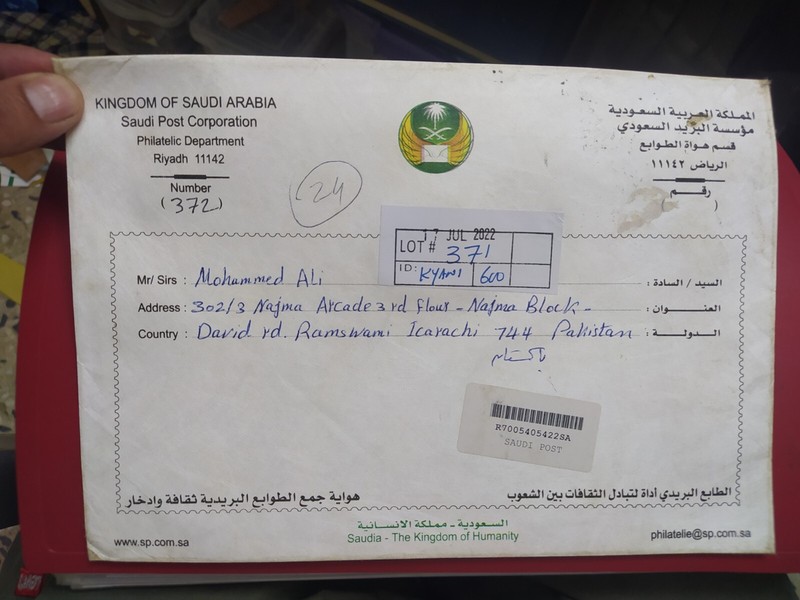 KINGDOM OF SAUDI ARABIA
Saudi Post Corporation
Philatelic Department
Riyadh 11142
Number
(372)
24
المملكة العربية السعودية
مؤسسة البريد السعودي
قسم هواة الطوابع
الرياض ١١١٤٢
رقم
( )
17 JUL 2022
LOT # 371
ID: KYANI 600
Mr/ Sirs : Mohammed Ali السيد / السادة :
Address : 302/3 Najma Arcade 3rd flour - Najma Block - العنوان :
Country : David rd. Ramswami Icarachi 744 Pakistan الدولة :
R7005405422SA
SAUDI POST
هواية جمع الطوابع البريدية ثقافة وادخار
الطابع البريدي أداة لتبادل الثقافات بين الشعوب
السعودية - مملكة الانسانية
Saudia - The Kingdom of Humanity
www.sp.com.sa
philatelie@sp.com.sa